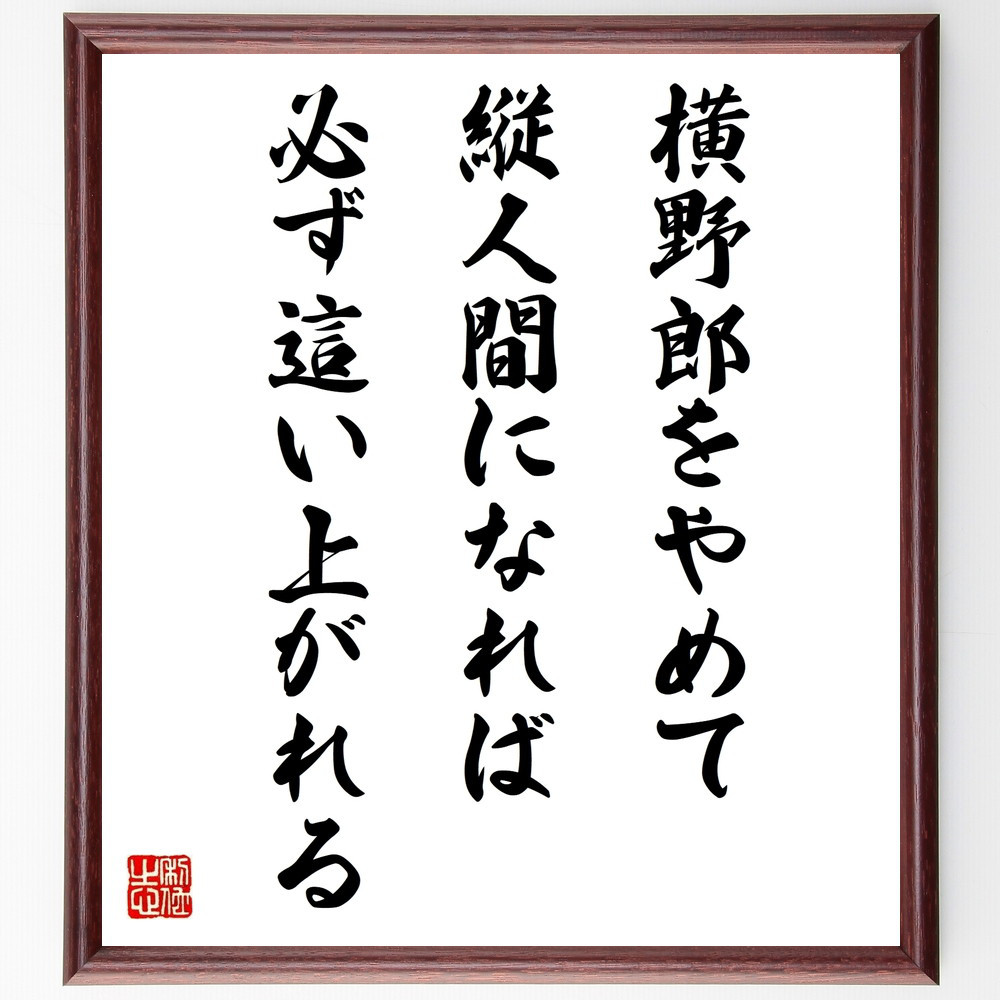 横野郎をやめて
縦人間になれば
必ず這い上がれる